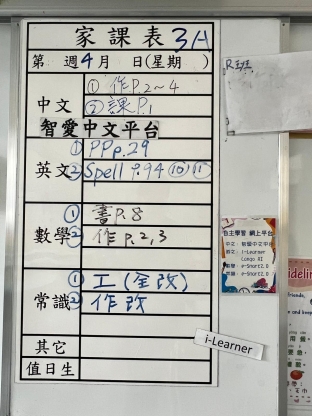 家課表 3A
第 週 4 月 日(星期 )
R班
中文
① 作P.2~4
② 課P.1
智愛中文平台
英文
① PP p.29
② Spell P.94 ⑩ ⑪
數學
① 書P.8
② 作P.2,3
常識
① 工(全改)
② 作改
其它
i-Learner
值日生
自主學習 網上平台
中文：智愛中文平台
i-Learner